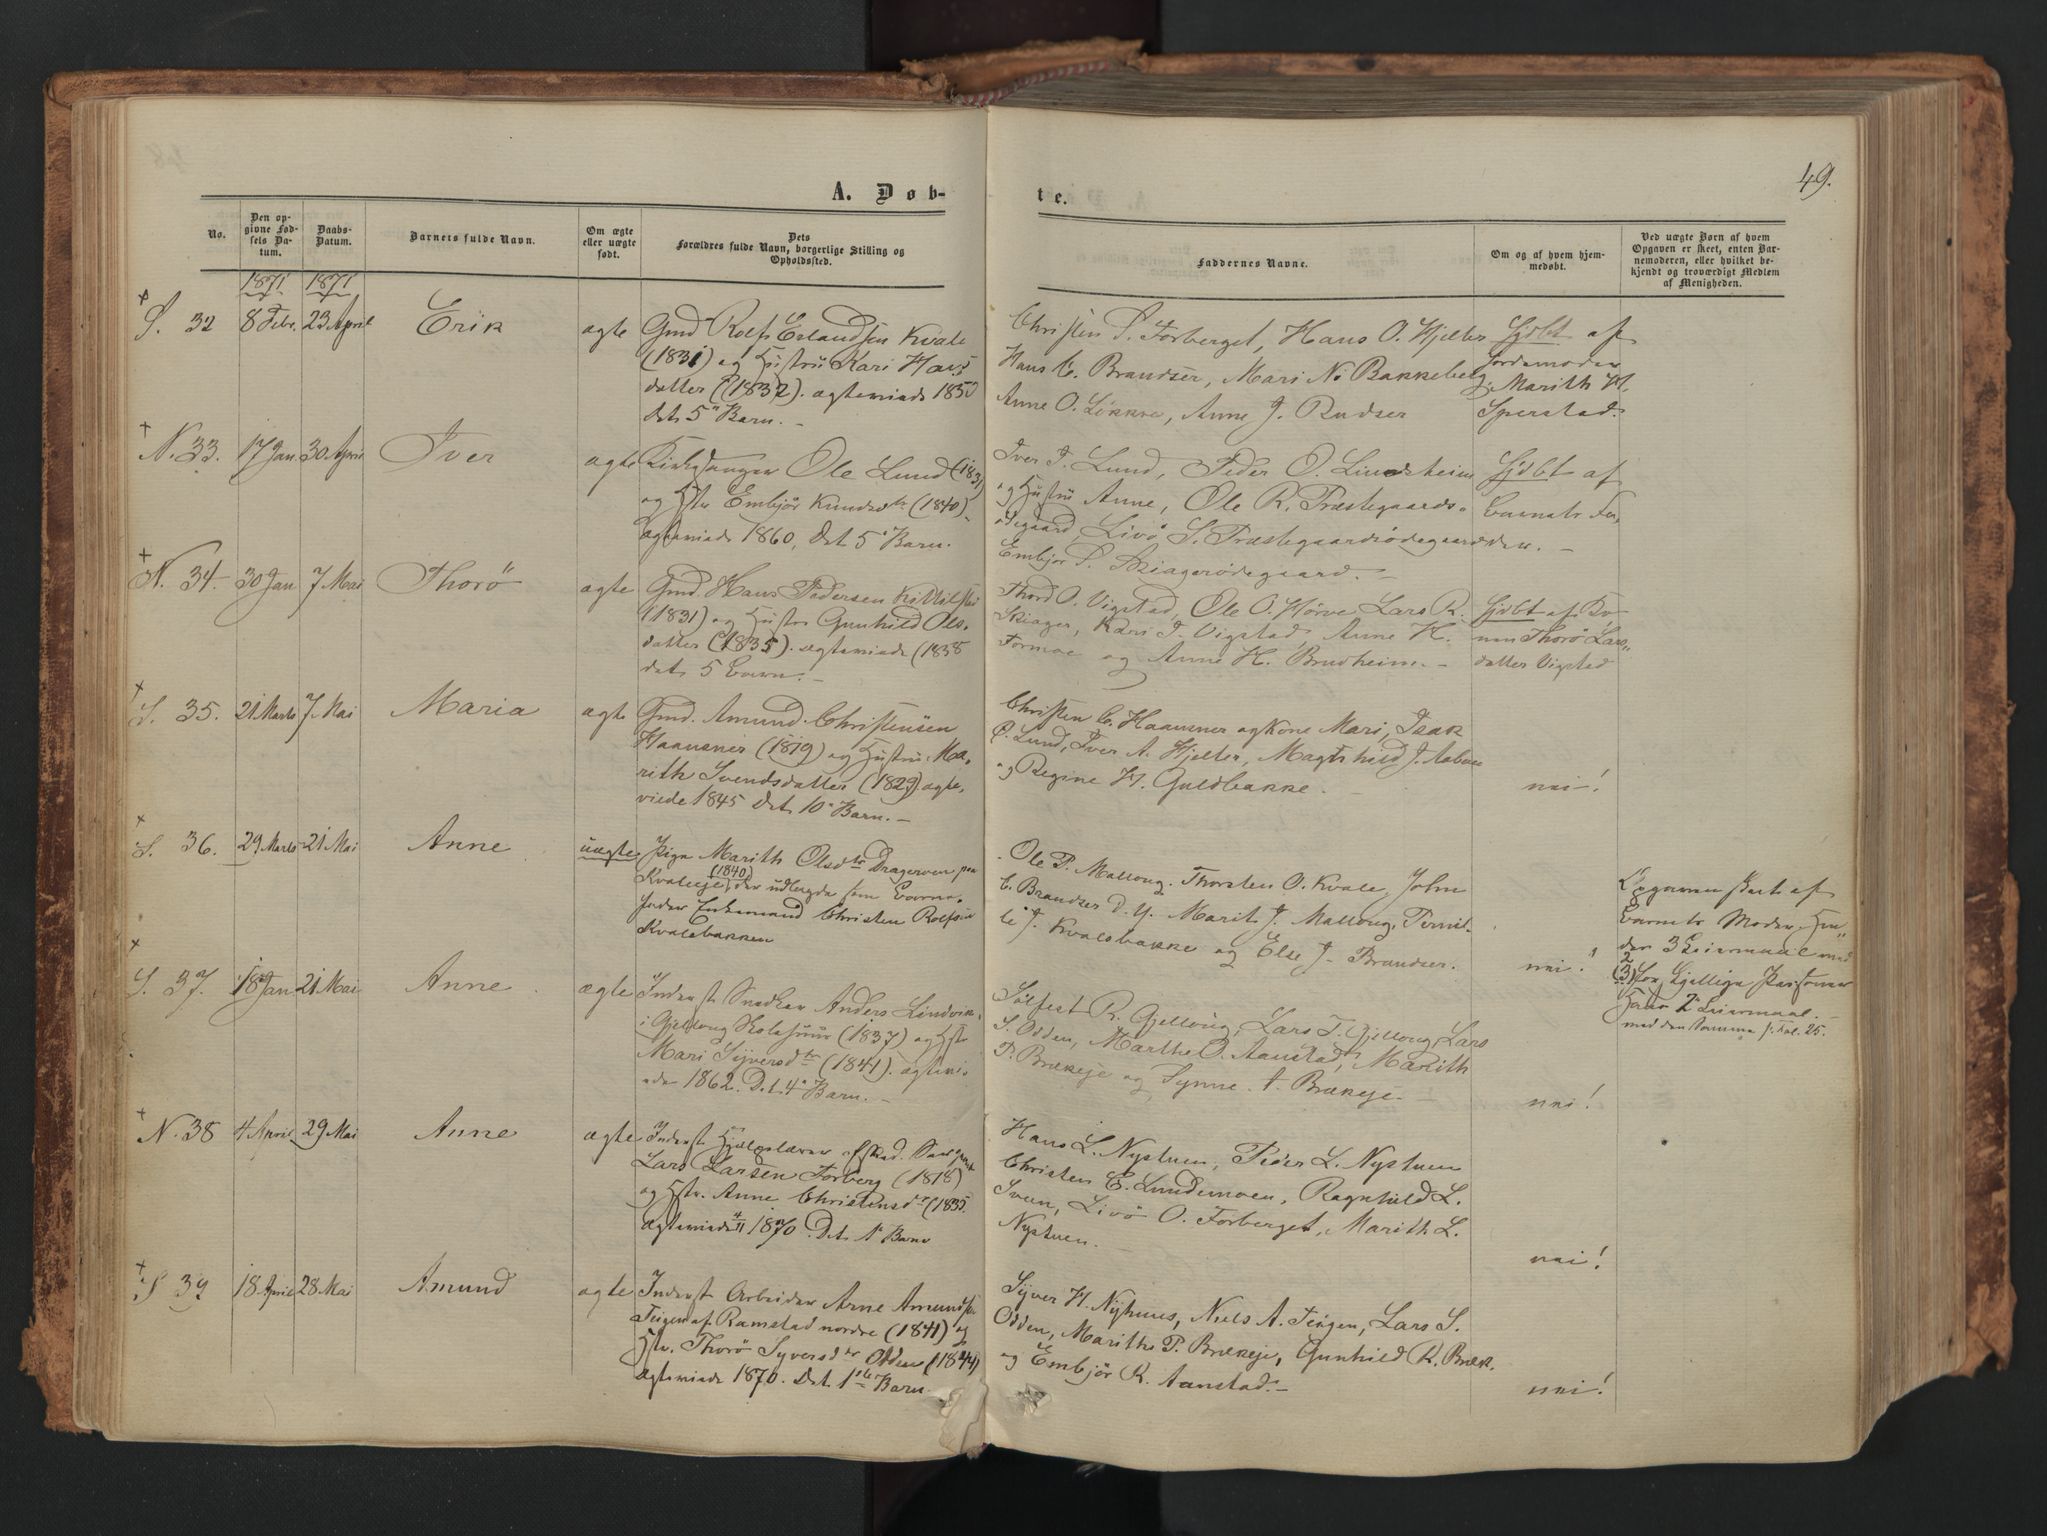 49.
A. Døb-
te.
No.
Den op-
givne Fød-
sels Da-
tum.
Daabs-
Datum.
Barnets fulde Navn.
Om ægte
eller uægte
født.
Dets
Forældres fulde Navn, borgerlige Stilling og
Opholdssted.
Faddernes Navne.
Om og af hvem hjem-
medøbt.
Ved uægte Børn af hvem
Opgaven er skeet, enten Bar-
nemoderen, eller hvilket be-
kjendt og troværdigt Medlem
af Menigheden.
1871 1871
S. 32 8 Febr. 23 April Erik ægte
Gmd Rolf Erlandsen Kvale
(1831) og Hustru Kari Hans
datter (1832). ægteviede 185
det 5" Barn. -
Christen P. Forberget, Hans O. Hjelter
Hans C. Brandser, Mari N. Bakkeberg
Anne O. Løkkre, Anne J. Rudser
Hjdbt af
Jordemoder
Marith H.
Sperstad.
N. 33. 17 Jan 30 April Iver ægte
Kirkesanger Ole Lund (1831)
og Hstr Embjør Knudsdtr (1840)
ægteviede 1860, det 5" Barn.
Iver I. Lund, Peder O. Lindsheim
og Hustru Anne, Ole R. Præstegaards-
ødegaard, Livø S. Præstegaardsødegaarden
Embjør P. Skiagerødegaard. -
Hjdbt af
Barnets Fa-
der. -
N. 34 30 Jan 7 Mai Thorø ægte
Gmd. Hans Pedersen Kittilstad
(1831) og Hustru Gunhild Ols-
datter (1835). ægteviede (1858
det 5 Barn. -
Thord O. Vigstad, Ole O. Hørve Lars R.
Skiager, Kari T. Vigstad, Anne H.
Formoe og Anne H. Brudheim. -
Hjdbt af Ko-
nen Thorø Lars-
datter Vigstad
S. 35. 21 Marts 7 Mai Maria ægte
Gmd. Amund Christensen
Haausner (1819) og Hustru Ma-
rith Svendsdatter (1829) ægte-
viede 1845 det 10" Barn. -
Christen C. Haausner og Kone Mari, Isak
P. Lund, Iver A. Hjelter, Magthild J.
og Regine H. Guldbakke. -
nei!
S. 36. 29 Marts 21 Mai Anne uægte
Pige Marith Olsdtr Dragerven paa
(1840)
Kvaleeje, der udlagde som Barne-
fader Enkemand Christen Rolfsen
Kvalebakken
Ole P. Mallong. Thorsten O. Kvale, John
C. Brandser d. y. Marit J. Mallong, Pernil-
le J. Kvalebakke og Else J. Brandser.
nei!
Opgaven skeet af
Barnets Moder, Hen-
des 3 Leiermaal med
2
(3) for
Hans 2" Leiermaal. -
med den samme p. fol. 25.
S. 37. 18 Jan 21 Mai Anne ægte
Inderst Snedker Anders Lindvik
i Gjellong Skolehuus (1837) og Hstr
Mari Syversdtr (1841). ægtevi-
ede 1862. Det 4" Barn. -
Sølfest R. Gjellong, Lars T. Gjellong, Lars
S. Odden, Marthe O. Aanstad, Marith
P. Brækeje og Synne T. Brækeje. -
nei!
N. 38 4 April 29 Mai Anne ægte
Inderst Hjælpelærer afsked. Sergeant
Lars Larsen Forberg (1818)
og Hstr. Anne Christensdtr (1835
ægteviede 4/11 1870. Det 1" Barn
Hans L. Nystuen, Peder L. Nystuen
Christen E. Lundemoen, Ragnhild L.
Sveen, Livø O. Forberget, Marith L.
Nystuen. -
nei!
S 39 18 April 28 Mai Amund ægte
Inderst Arbeider Arne Amunds
Teigen af Ramstad nordre (1841) og
Hstr. Thorø Syversdtr Odden (1844)
ægteviede 1870. Det 1ste Barn.
Syver H. Nyhuus, Niels A. Teigen, Lars S.
Odden, Marith P. Brækeje, Gunhild R. Bræk.
og Embjør R. Aanstad. -
nei!